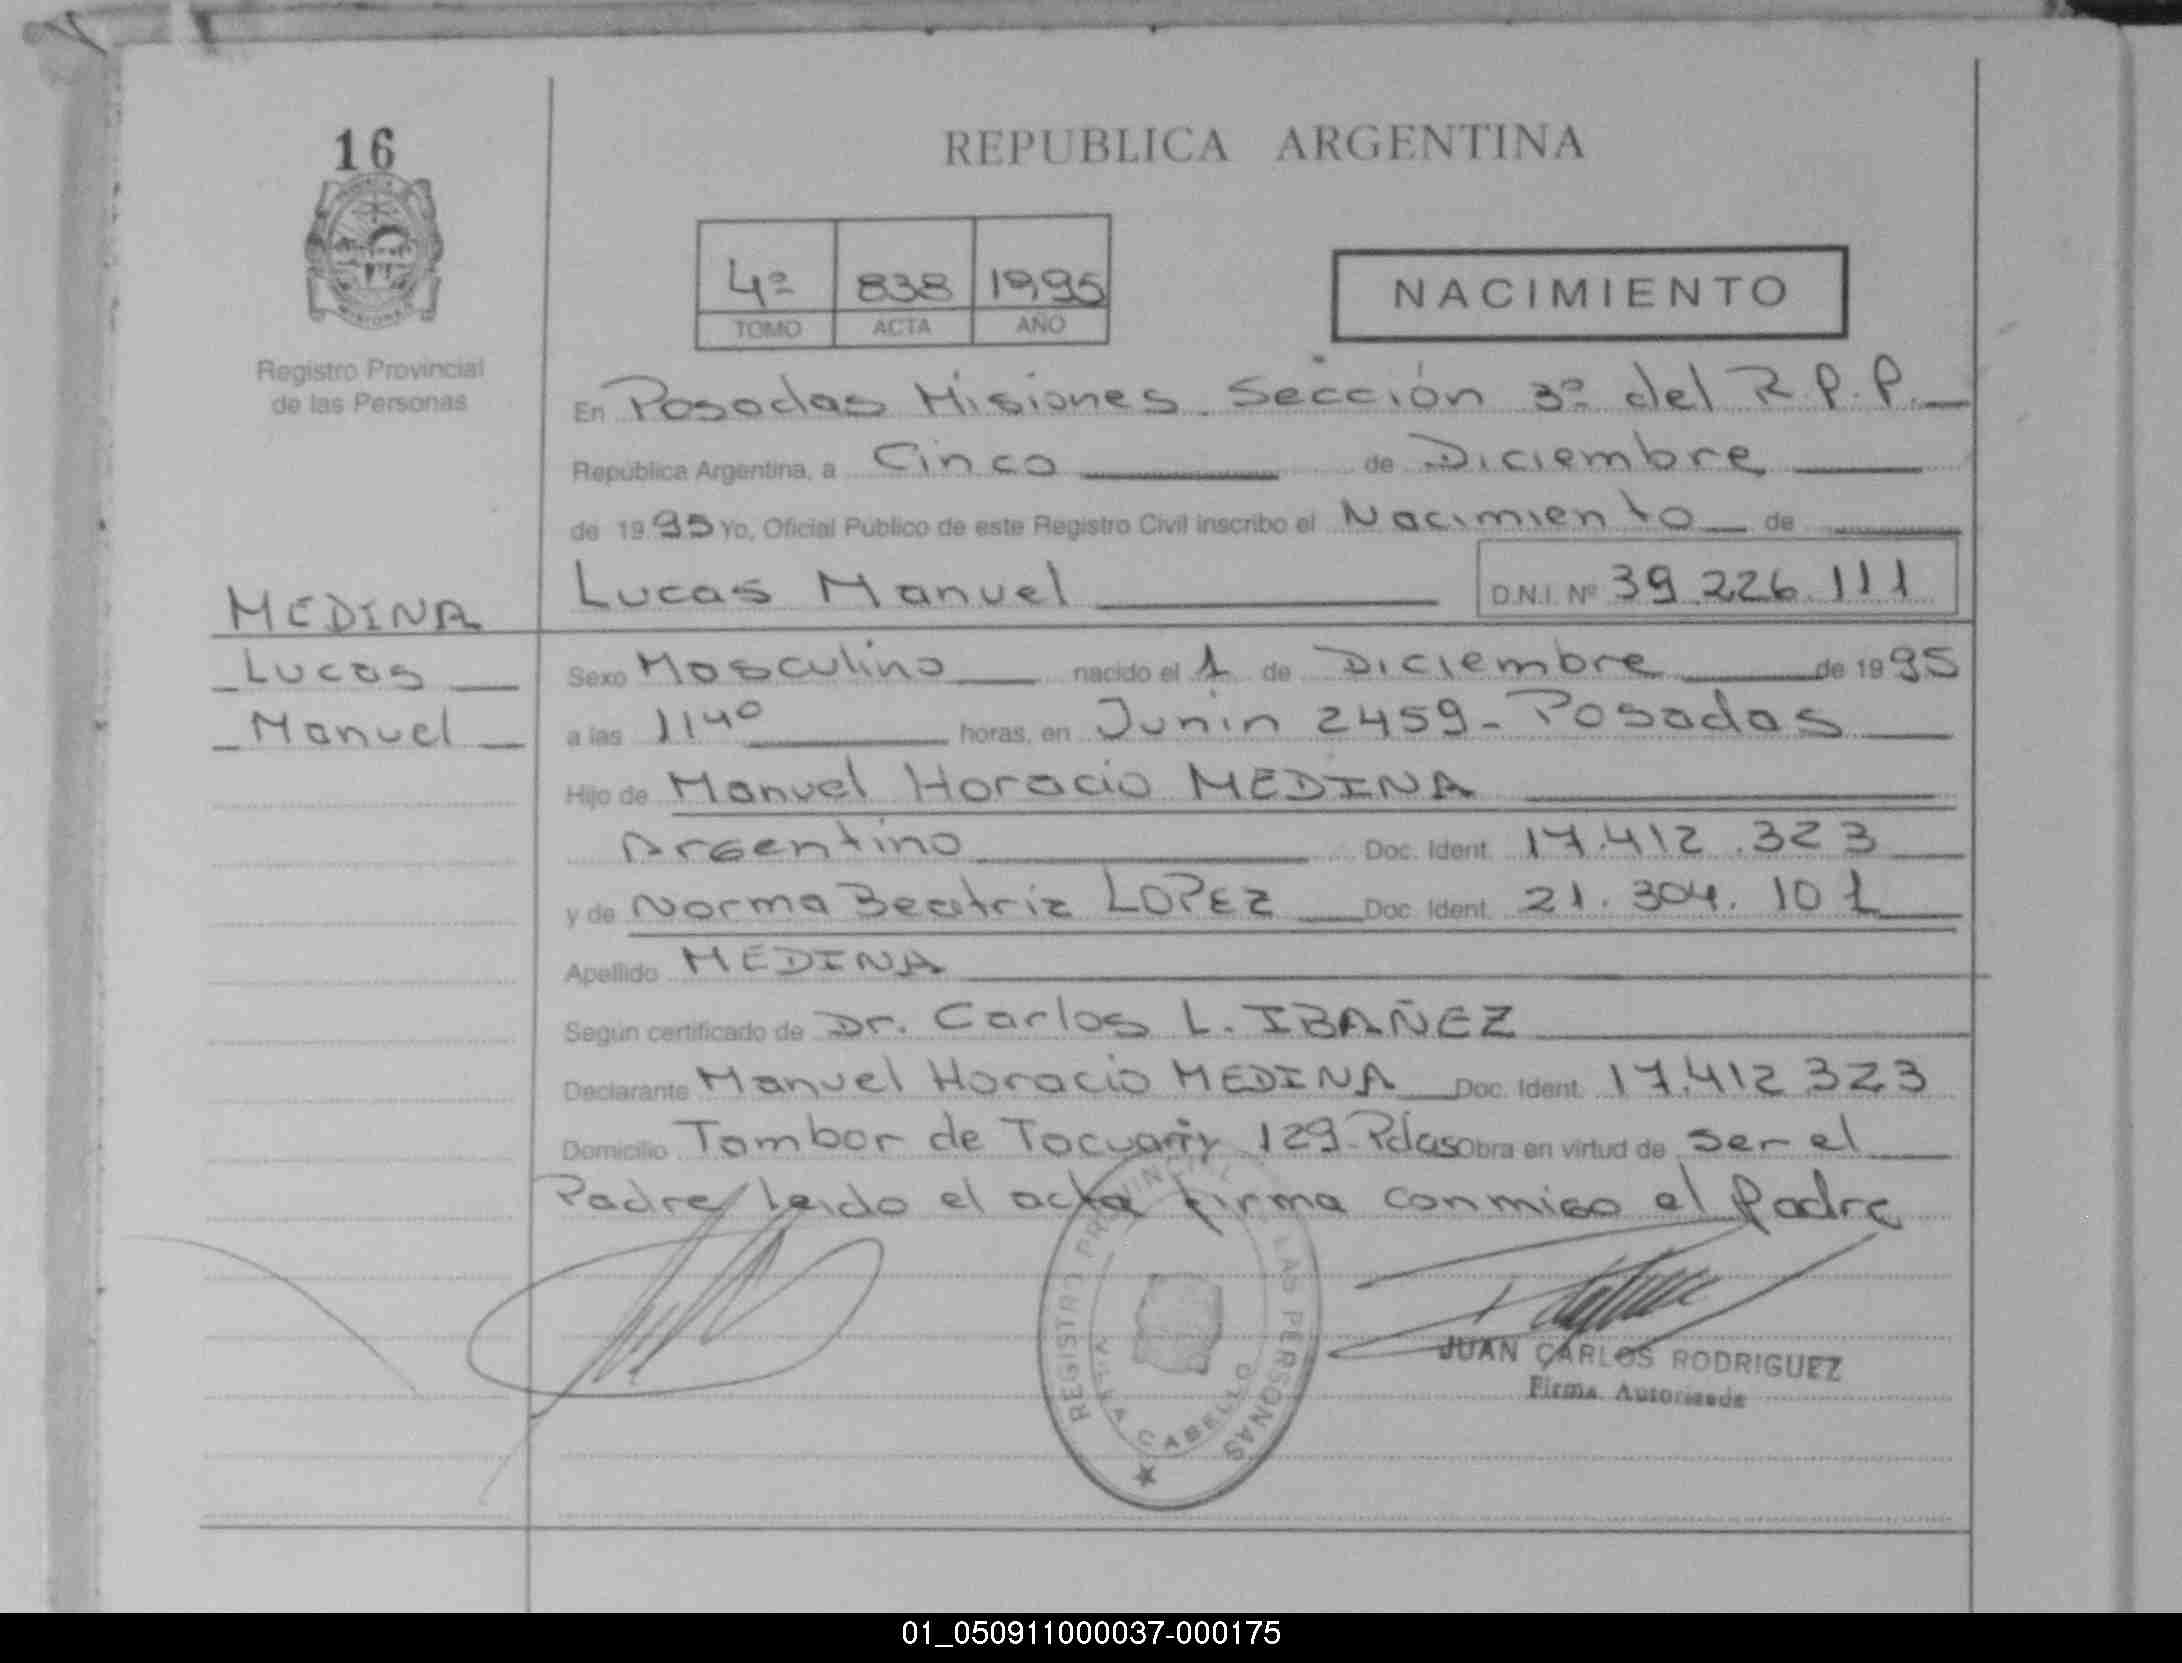 16
REPUBLICA ARGENTINA
4º 838 1995
TOMO ACTA AÑO
NACIMIENTO
Registro Provincial
de las Personas
En Posadas Misiones. Sección 3º del R.P.P.
República Argentina, a Cinco de Diciembre
de 1995 Yo, Oficial Público de este Registro Civil inscribo el Nacimiento de
Lucas Manuel D.N.I. Nº 39.226.111
MEDINA
Lucas
Manuel
Sexo Masculino nacido el 1 de Diciembre de 1995
a las 11 40 horas, en Junin 2459 - Posadas
Hijo de Manuel Horacio MEDINA
Argentino Doc. Ident. 17.412.323
y de Norma Beatriz LOPEZ Doc. Ident. 21.304.101
Apellido MEDINA
Según certificado de Dr. Carlos L. IBAÑEZ
Declarante Manuel Horacio MEDINA Doc. Ident. 17.412.323
Domicilio Tambor de 129 - Pdas Obra en virtud de ser el
Padre leido el acta firma conmigo el Padre
REGISTRO PROVINCIAL LAS PERSONAS
CABELLO
JUAN CARLOS RODRIGUEZ
Firma Autorizada
01_050911000037-000175